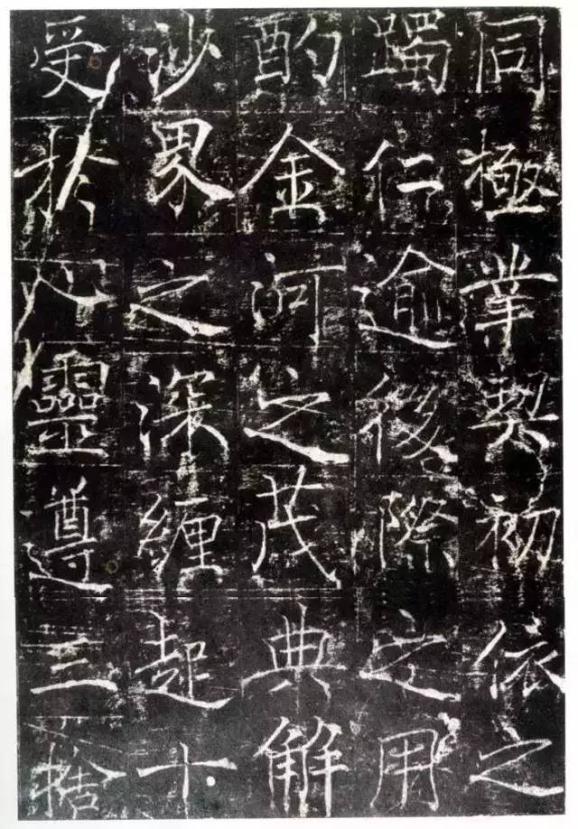 同極業契初依之
躅仁逾後際之用
酌金河之茂典解
沙界之深纏起十
受於八靈遵三捨